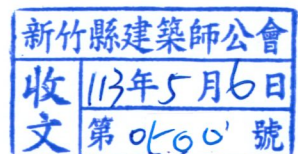 新竹縣建築師公會
收文
113年5月6日
第0500號